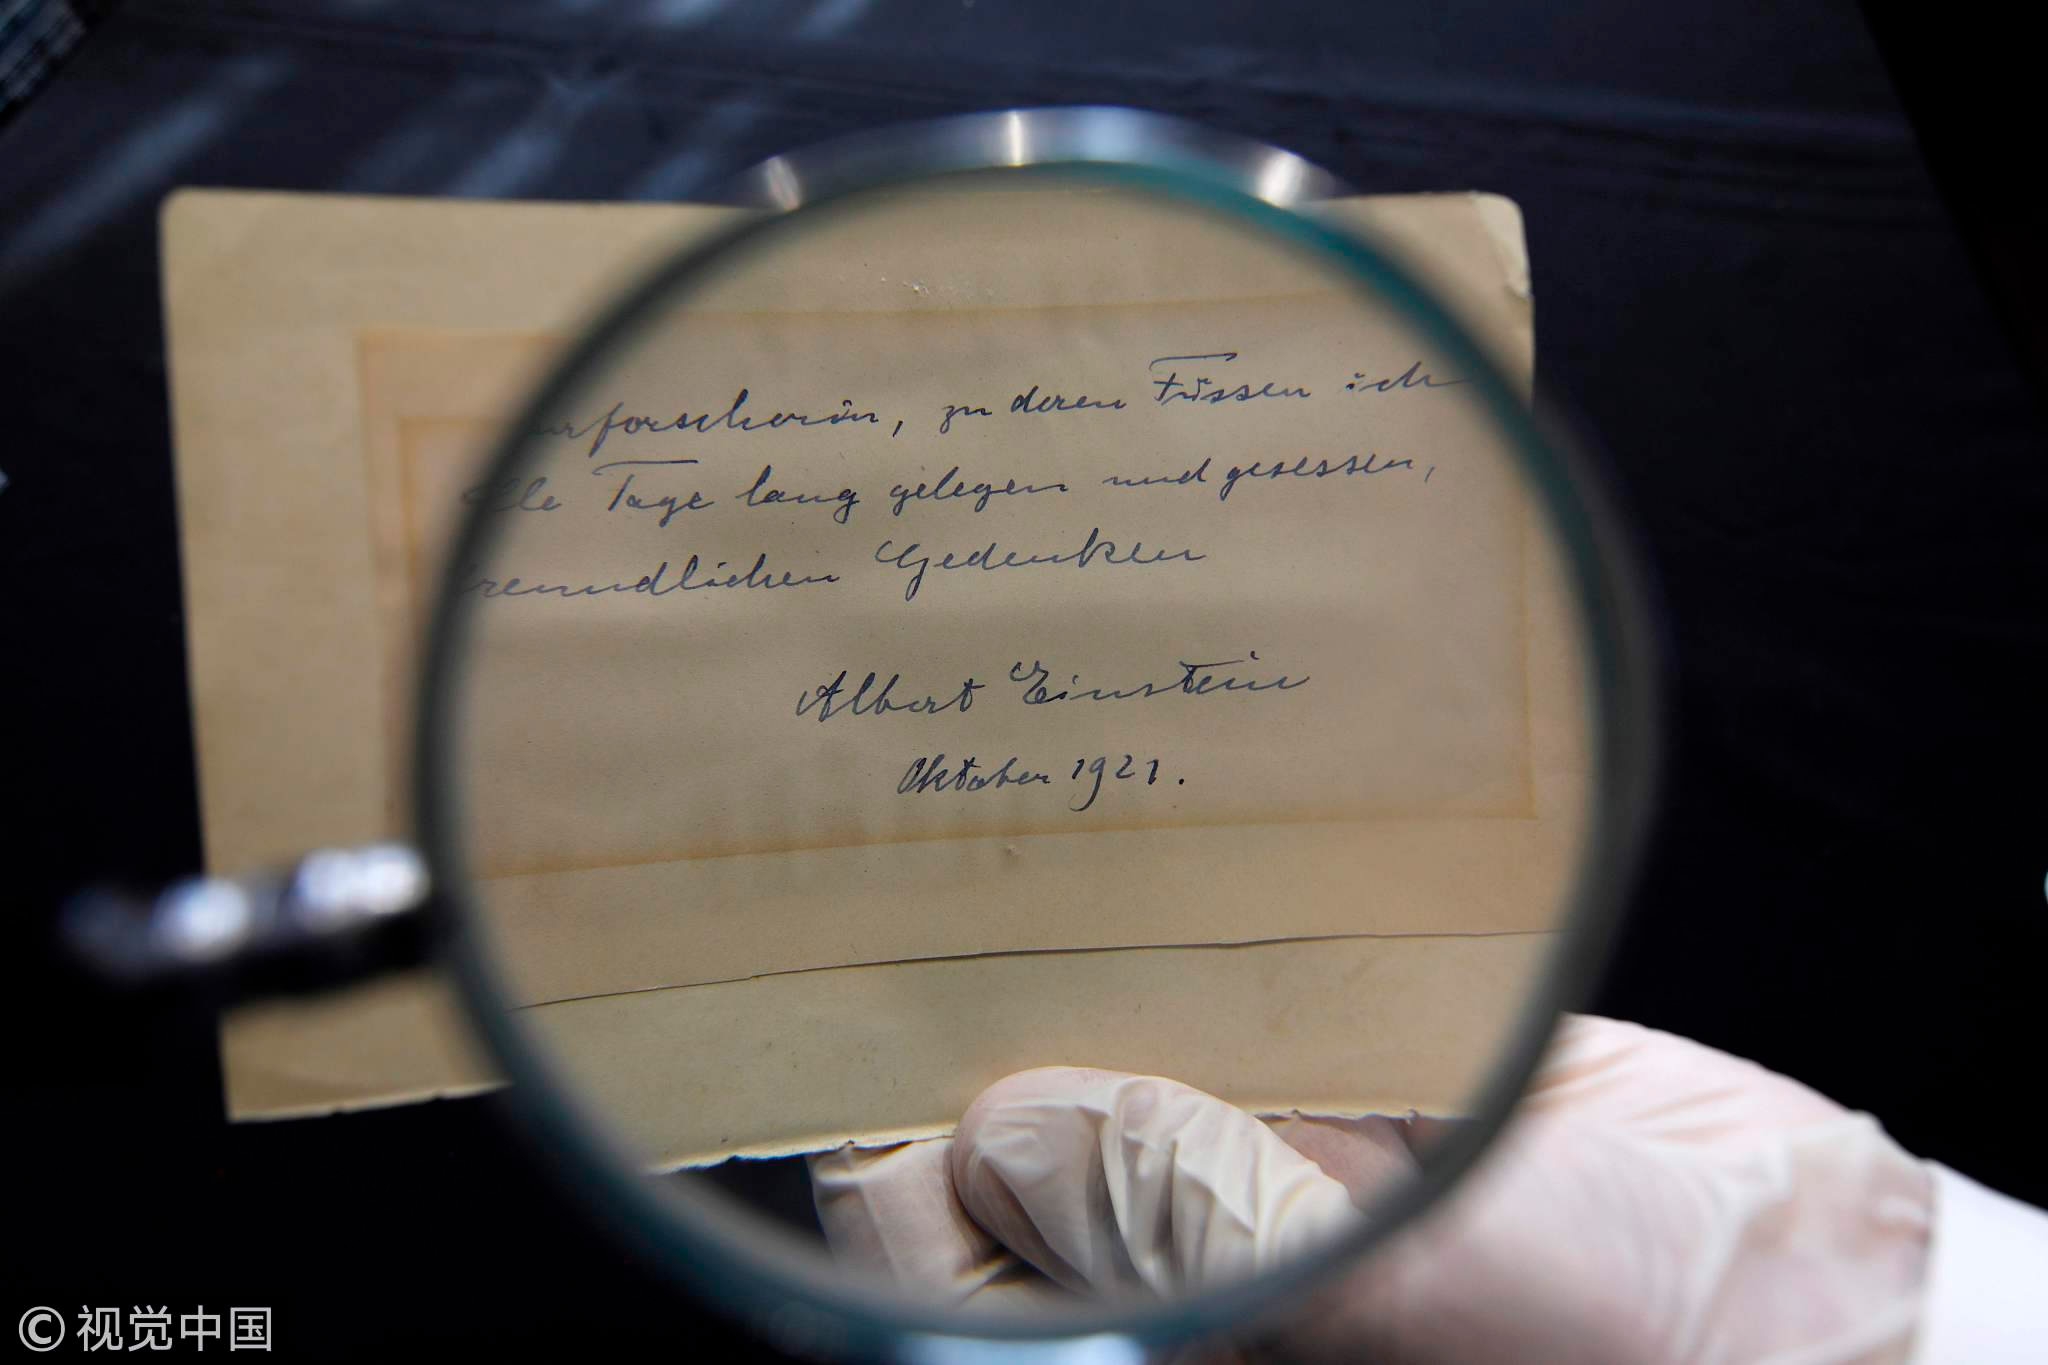 urforscherin, zu deren Füssen ich
lle Tage lang gelegen und gesessen,
freundlichen Gedenken
Albert Einstein
Oktober 1921.
© 视觉中国